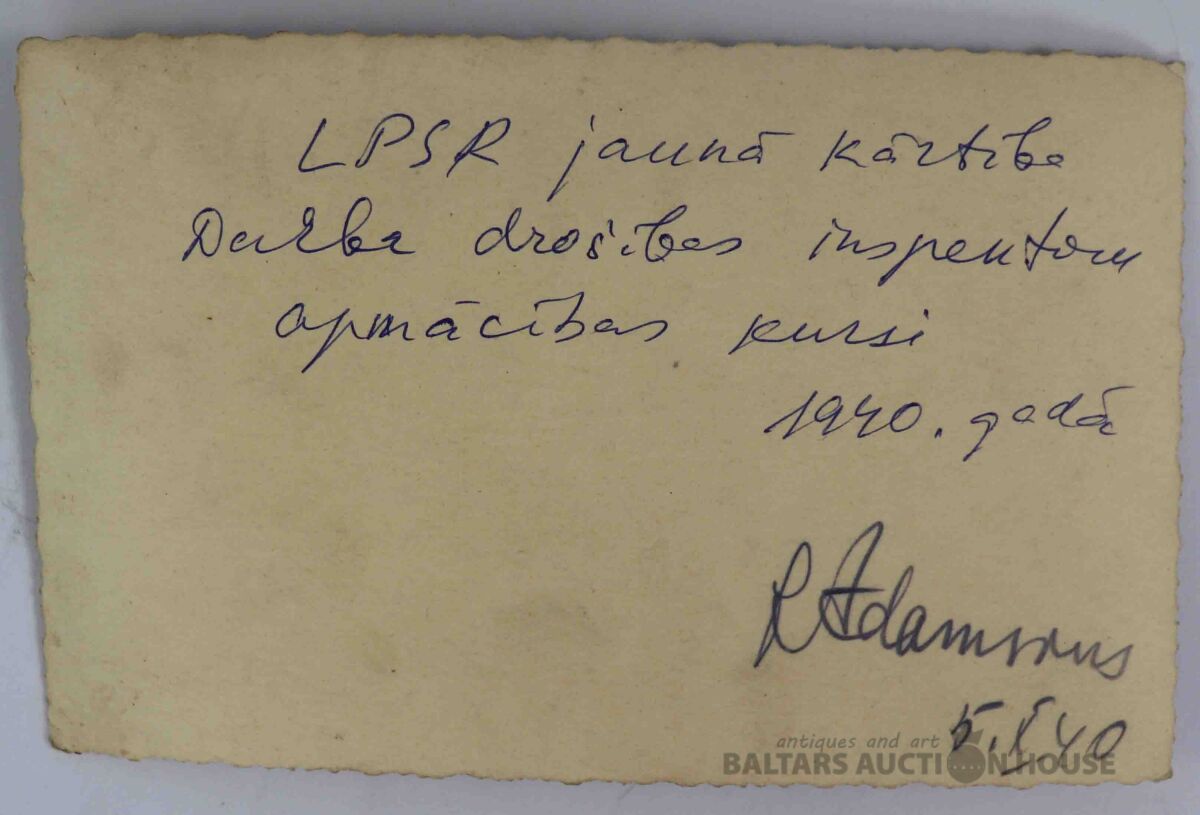 LPSR jaunā kārtība
Darba drošības inspektoru
apmācības kursi
1940. gadā
R Adamsons
5.X 40
antiques and art
BALTARS AUCTION HOUSE